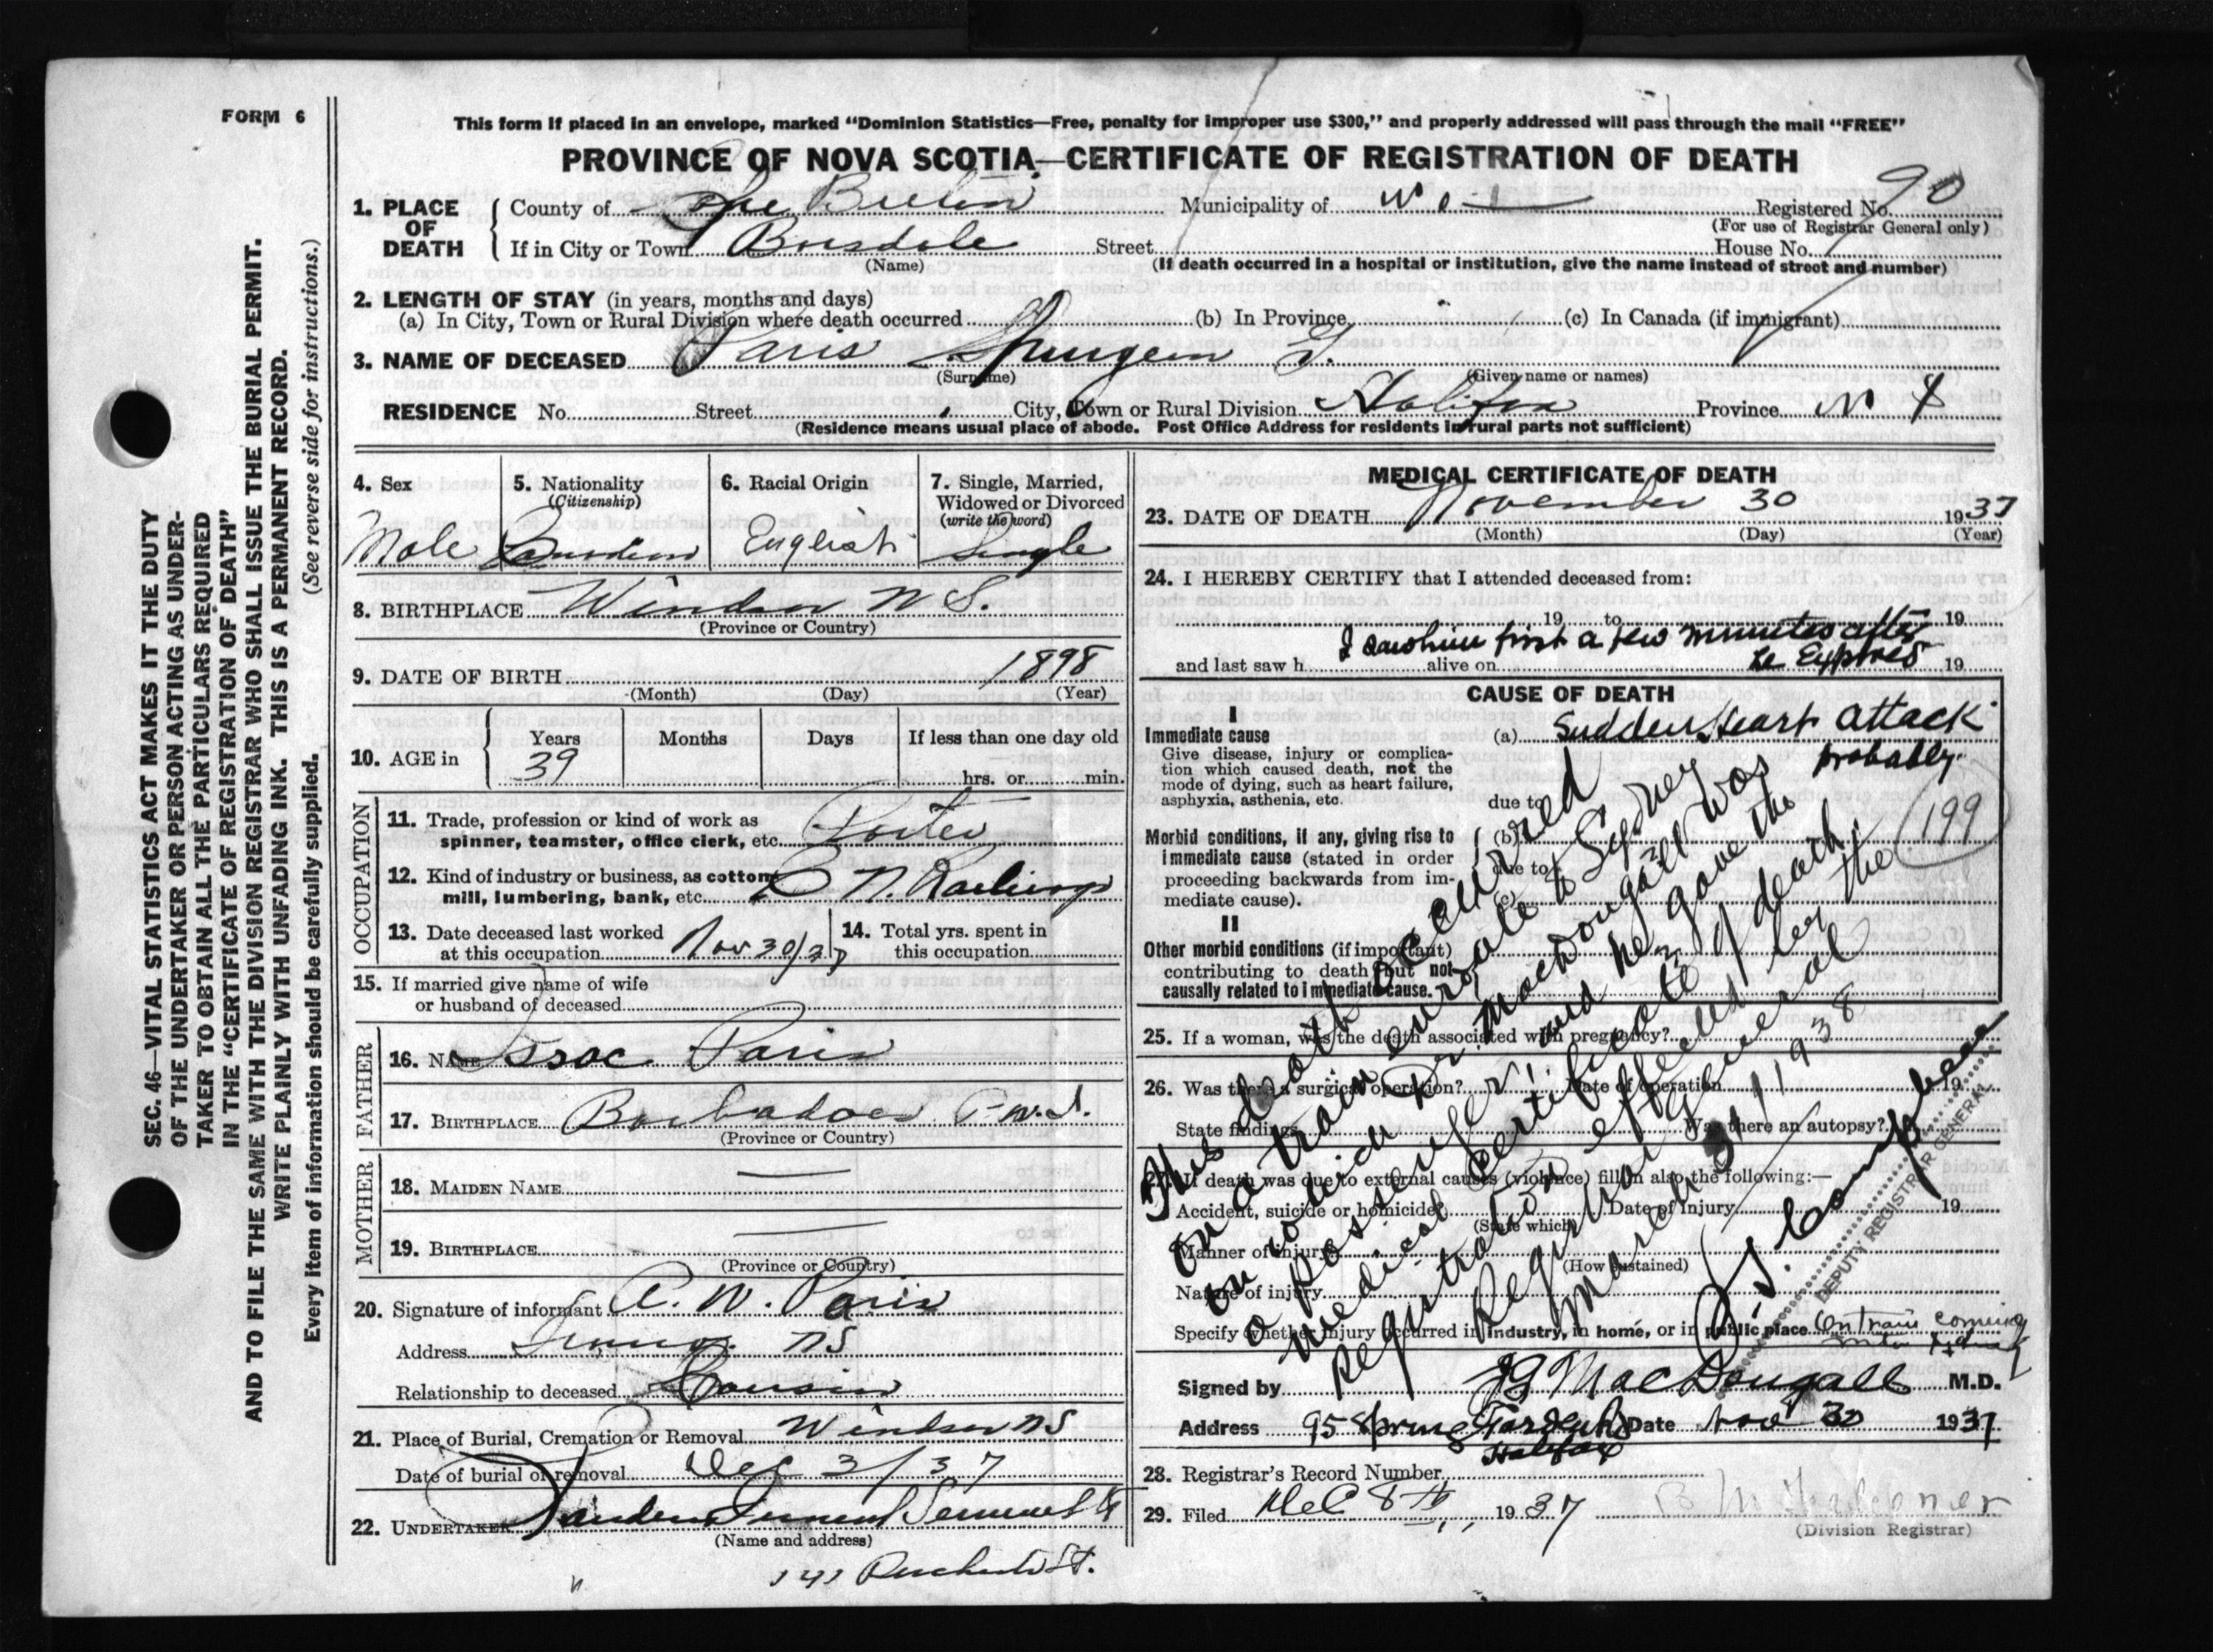 FORM 6
This form if placed in an envelope, marked “Dominion Statistics—Free, penalty for improper use $300,” and properly addressed will pass through the mail “FREE”
PROVINCE OF NOVA SCOTIA—CERTIFICATE OF REGISTRATION OF DEATH
1. PLACE OF DEATH
County of Cape Breton Municipality of Registered No. 90
(For use of Registrar General only)
If in City or Town Boisdale Street House No.
(Name) (If death occurred in a hospital or institution, give the name instead of street and number)
2. LENGTH OF STAY (in years, months and days)
(a) In City, Town or Rural Division where death occurred (b) In Province (c) In Canada (if immigrant)
3. NAME OF DECEASED Paris Spurgeon
(Surname) (Given name or names)
RESIDENCE No. Street City, Town or Rural Division Halifax Province N S
(Residence means usual place of abode. Post Office Address for residents in rural parts not sufficient)
4. Sex
Male
5. Nationality
(Citizenship)
Canadian
6. Racial Origin
English
7. Single, Married,
Widowed or Divorced
(write the word)
Single
8. BIRTHPLACE Windsor N S.
(Province or Country)
9. DATE OF BIRTH 1898
(Month) (Day) (Year)
10. AGE in
Years Months Days If less than one day old
39
hrs. or min.
OCCUPATION
11. Trade, profession or kind of work as
spinner, teamster, office clerk, etc. Porter
12. Kind of industry or business, as cotton
mill, lumbering, bank, etc. C N. Railways
13. Date deceased last worked
at this occupation Nov 30/37
14. Total yrs. spent in
this occupation
15. If married give name of wife
or husband of deceased
FATHER
16. NAME Isaac Paris
17. BIRTHPLACE Barbadoes B.W.I.
(Province or Country)
MOTHER
18. MAIDEN NAME —
19. BIRTHPLACE —
(Province or Country)
20. Signature of informant W. Paris
Address Truro. NS
Relationship to deceased Cousin
21. Place of Burial, Cremation or Removal Windsor NS
Date of burial or removal Dec 3/37
22. UNDERTAKER
(Name and address)
St.
MEDICAL CERTIFICATE OF DEATH
23. DATE OF DEATH November 30 1937
(Month) (Day) (Year)
24. I HEREBY CERTIFY that I attended deceased from:
19 to 19
I saw him first a few minutes after
and last saw h alive on he expired 19
CAUSE OF DEATH
I
Immediate cause
Give disease, injury or complica-
tion which caused death, not the
mode of dying, such as heart failure,
asphyxia, asthenia, etc.
(a) Sudden Heart attack
probably
due to
199
Morbid conditions, if any, giving rise to
immediate cause (stated in order
proceeding backwards from im-
mediate cause).
(b)
due to
(c)
II
Other morbid conditions (if important)
contributing to death but not
causally related to immediate cause.
25. If a woman, was the death associated with pregnancy?
26. Was there a surgical operation? Date of operation 19
State findings Was there an autopsy?
27. If death was due to external causes (violence) fill in also the following:—
Accident, suicide or homicide? Date of injury 19
(State which)
Manner of injury
(How sustained)
Nature of injury
Specify whether injury occurred in industry, in home, or in public place On train coming
into Sydney
Signed by J G MacDougall M.D.
Address 95 Spring Garden Rd Date Nov 30 1937
Halifax
28. Registrar's Record Number
29. Filed Dec 8th 1937
(Division Registrar)
This death occurred
on a train enroute to Sydney
on which Dr. MacDougall was
a passenger and he gave the
medical certificate of death.
Registration effected by the
Registrar General
March 31 1938
Campbell
DEPUTY REGISTRAR GENERAL
SEC. 46—VITAL STATISTICS ACT MAKES IT THE DUTY
OF THE UNDERTAKER OR PERSON ACTING AS UNDER-
TAKER TO OBTAIN ALL THE PARTICULARS REQUIRED
IN THE “CERTIFICATE OF REGISTRATION OF DEATH”
AND TO FILE THE SAME WITH THE DIVISION REGISTRAR WHO SHALL ISSUE THE BURIAL PERMIT.
WRITE PLAINLY WITH UNFADING INK. THIS IS A PERMANENT RECORD.
Every item of information should be carefully supplied. (See reverse side for instructions.)